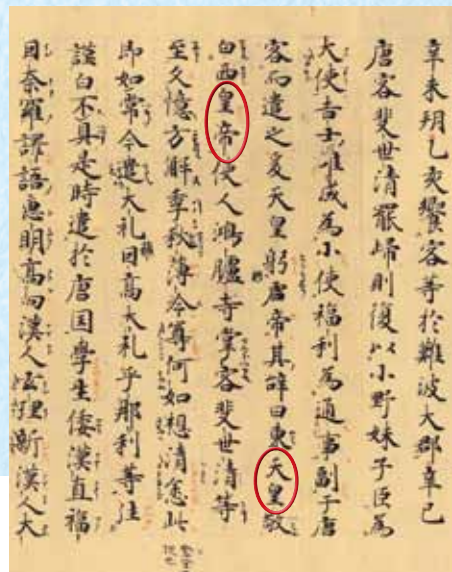 辛未朔乙亥饗客等於難波大郡辛巳
唐客裴世清罷歸則復以小野妹子臣為
大使吉士雄成為小使福利為通事副于唐
客而遣之爰天皇聘唐帝其辞曰東天皇敬
白西皇帝使人鴻臚寺掌客裴世清等
至久憶方解季秋薄冷尊何如想清悆此
即如常今遣大礼蘇因高大礼乎那利等往
謹白不具是時遣於唐国學生倭漢直福
因奈羅譯語惠明高向漢人玄理新漢人大